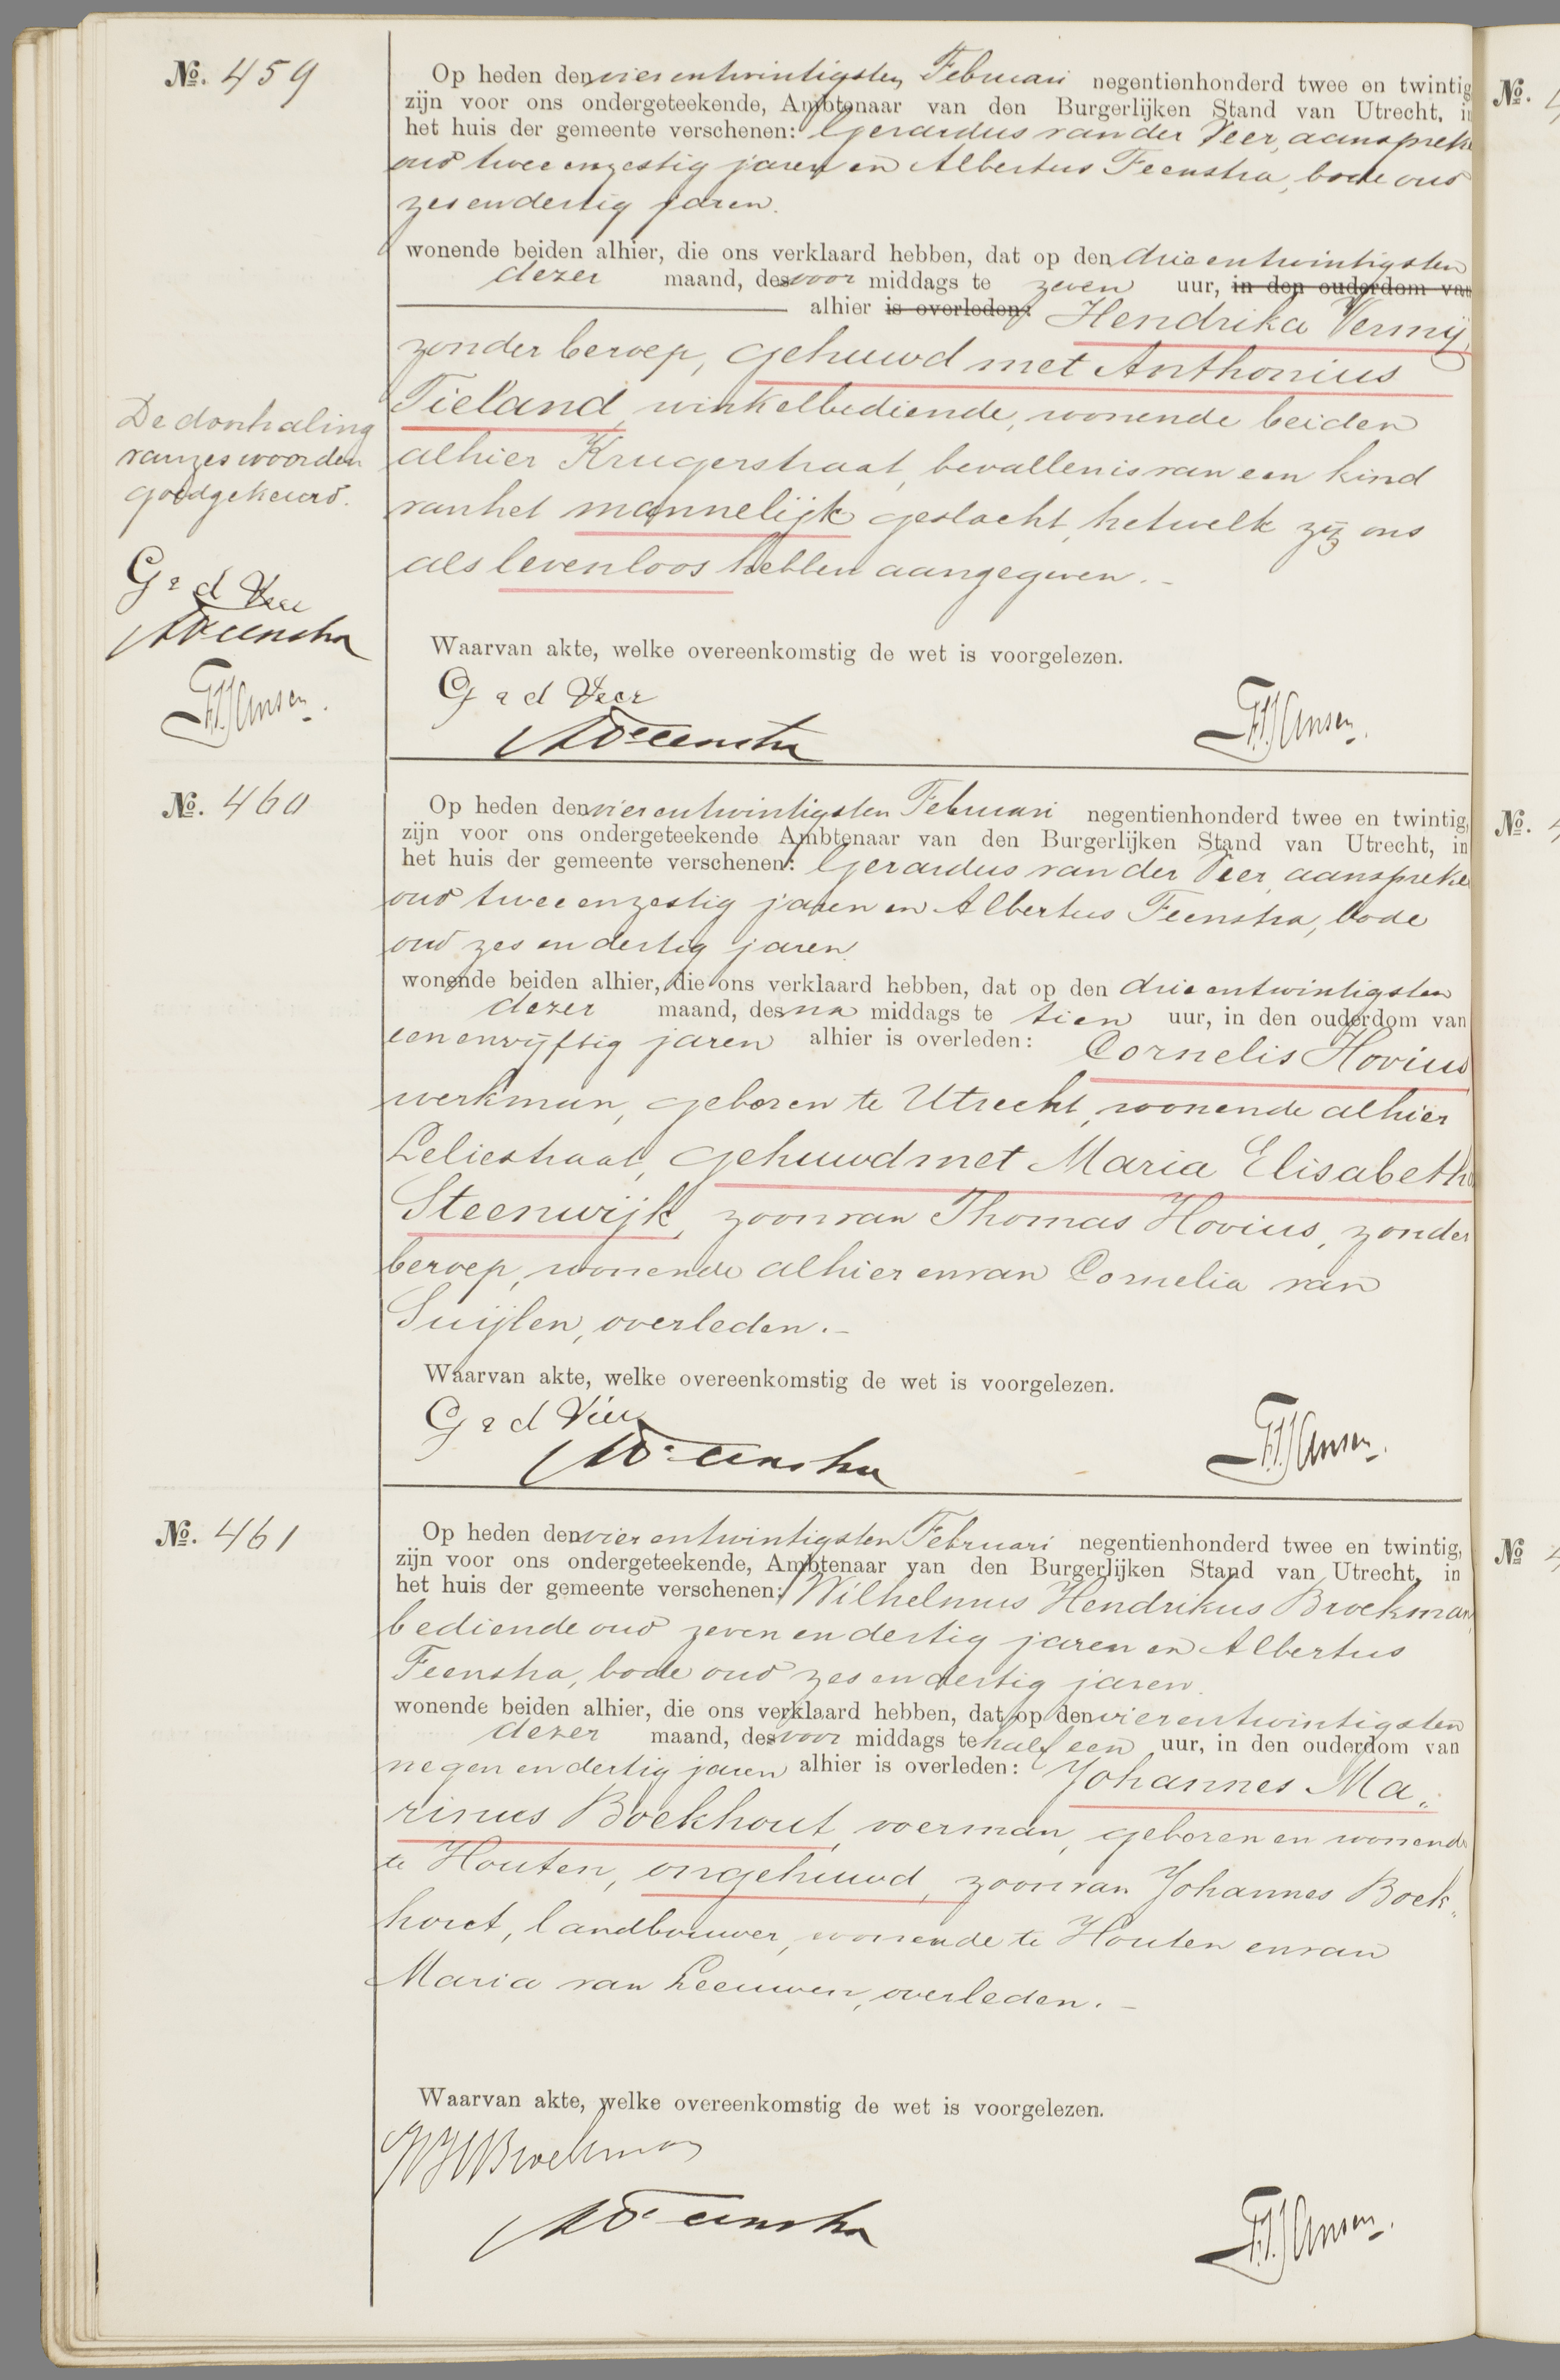 No. 459
Op heden den vierentwintigsten Februari negentienhonderd twee en twintig
zijn voor ons ondergeteekende, Ambtenaar van den Burgerlijken Stand van Utrecht, in
het huis der gemeente verschenen: Gerardus van der Veer, aanspreke
oud twee en zestig jaren en Albertus Feenstra, bode oud
zes en dertig jaren.
wonende beiden alhier, die ons verklaard hebben, dat op den drie entwintigsten
dezer maand, des voor middags te zeven uur, in den ouderdom van
alhier is overleden: Hendrika Vermij,
zonder beroep, gehuwd met Anthonius
Tieland, winkelbediende, wonende beiden
alhier Krugerstraat, bevallen is van een kind
van het mannelijk geslacht, hetwelk zij ons
als levenloos hebben aangegeven.-
De doorhaling
van zes woorden
goedgekeurd.
G v d Veer
A Feenstra
F.J. Jansen.
Waarvan akte, welke overeenkomstig de wet is voorgelezen.
G v d Veer
A Feenstra
F.J. Jansen.
No. 460
Op heden den vierentwintigsten Februari negentienhonderd twee en twintig,
zijn voor ons ondergeteekende Ambtenaar van den Burgerlijken Stand van Utrecht, in
het huis der gemeente verschenen: Gerardus van der Veer, aanspreke
oud twee en zestig jaren en Albertus Feenstra, bode
oud zes en dertig jaren.
wonende beiden alhier, die ons verklaard hebben, dat op den drie entwintigsten
dezer maand, des na middags te tien uur, in den ouderdom van
een en vijftig jaren alhier is overleden: Cornelis Hovius
werkman, geboren te Utrecht, wonende alhier
Leliestraat, gehuwd met Maria Elisabeth
Steenwijk, zoon van Thomas Hovius, zonder
beroep, wonende alhier en van Cornelia van
Suijlen, overleden.-
Waarvan akte, welke overeenkomstig de wet is voorgelezen.
G v d Veer
A Feenstra
F.J. Jansen.
No. 461
Op heden den vier entwintigsten Februari negentienhonderd twee en twintig,
zijn voor ons ondergeteekende, Ambtenaar van den Burgerlijken Stand van Utrecht, in
het huis der gemeente verschenen: Wilhelmus Hendrikus Broekman,
bediende oud zeven en dertig jaren en Albertus
Feenstra, bode oud zes en dertig jaren.
wonende beiden alhier, die ons verklaard hebben, dat op den vierentwintigsten
dezer maand, des voor middags te half een uur, in den ouderdom van
negen en dertig jaren alhier is overleden: Johannes Ma„
rinus Boekhout, voerman, geboren en wonende
te Houten, ongehuwd, zoon van Johannes Boek„
hout, landbouwer, wonende te Houten en van
Maria van Leeuwen, overleden.-
Waarvan akte, welke overeenkomstig de wet is voorgelezen.
W H Broekman
A Feenstra
F.J. Jansen.
No.
No.
No